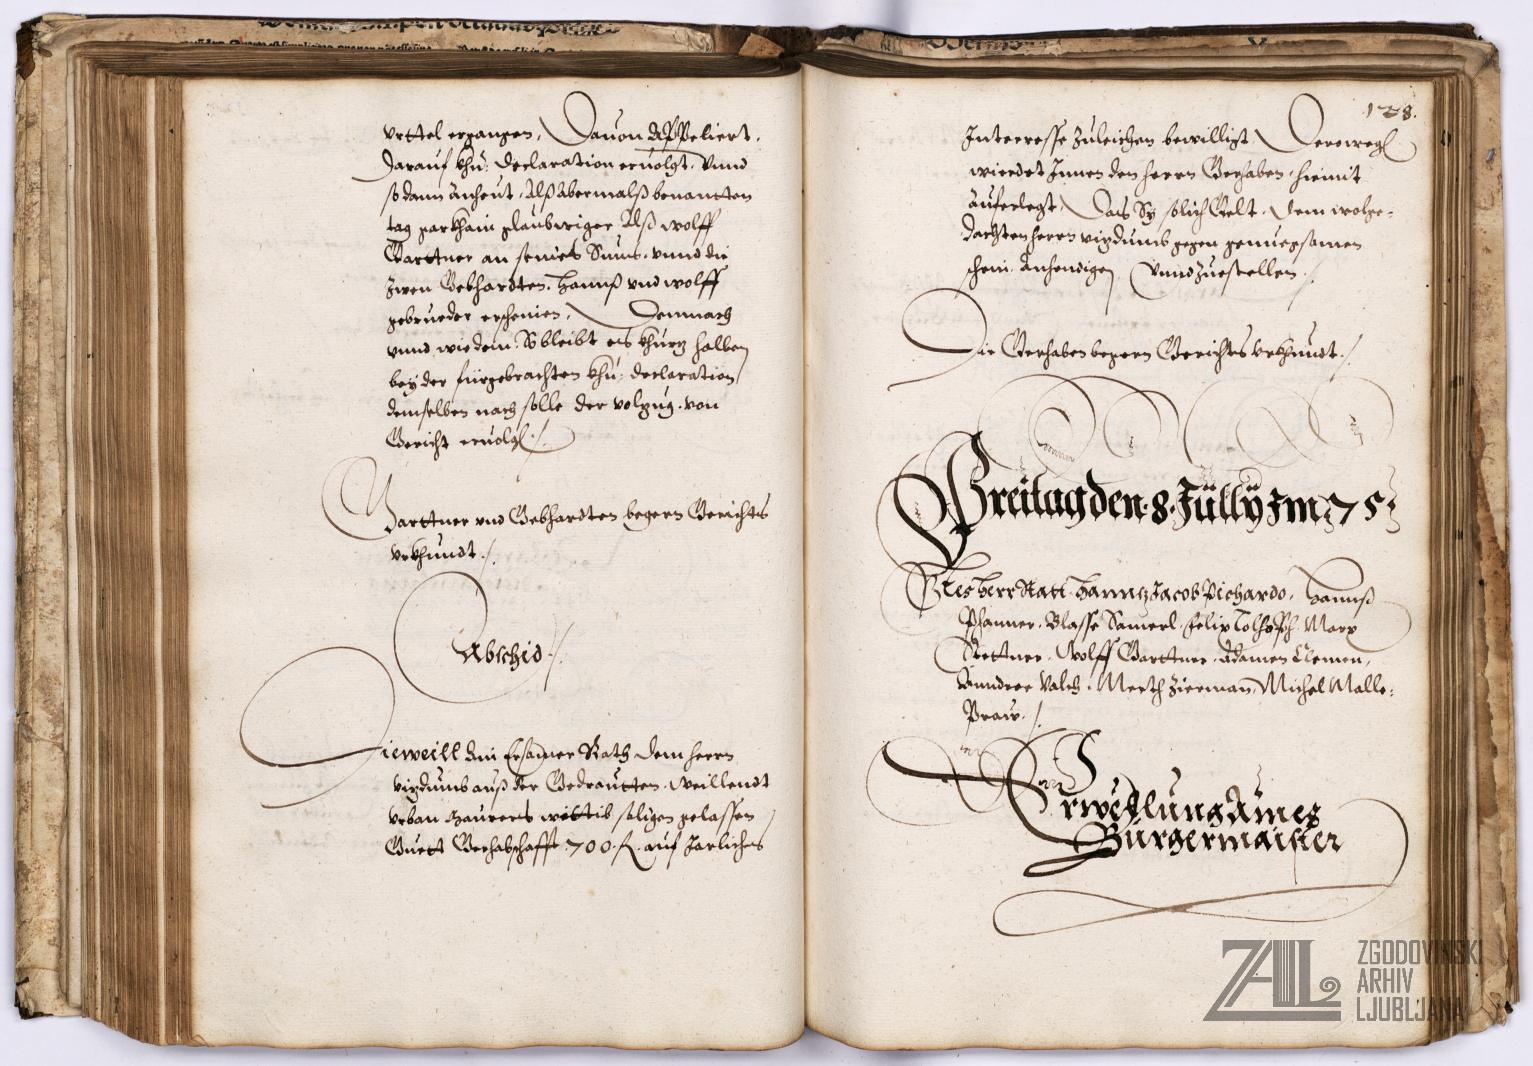 vrttel ergangen, Dauon Appeliert,
Darauf khü: declaration eruolgt. Vnnd
so dann anheut, Alß Abermalß benantten
tag gar khain glaubwiger Alß wolff
Garttner an seines Suns, vnnd die
zwen Gebhardten, Hannß vnd wolff
gebrueder erschinen, Demnach
vnnd wie dem, So bleibt es khurtz halben
bey der fürgebrachten khü: declaration
demselben nach solle der volzug von
Gericht eruolgen ./.
Garttner vnd Gebhardten begern Gerichts
vrkhundt ./.
Abschid ./.
Dieweill Ain Ersamer Rath dem herrn
vizdumb auß der Gedrautten, Weillendt
vrban wittib säligen gelassen
Guett Gerhabschafft 700 fl. auf Järliches
128.
Interesse zuleichen bewilligt Derowegen
wierdet Innen den herrn Gerhaben hiemit
auferlegt, Das Sy solich Gelt, dem wolge-
dachten herrn vizdumb gegen genuegsamen
schein Anhendigen Vnnd zuestellen ./.
Die Gerhaben begern Gerichts vrkhundt ./.
Freitag den 8. Jully Im 75
Herr Hannß Jacob Pichardo, Hannß
Pfanner, Blasse Samerl, Felix Marx
Stettner, Wolff Garttner, Adamen Clemen,
Anndree Valch, Merth Zierman, Michel Malle-
Praw. ./.
Erwellung Aines
Burgermaister
ZAL ZGODOVINSKI
ARHIV
LJUBLJANA